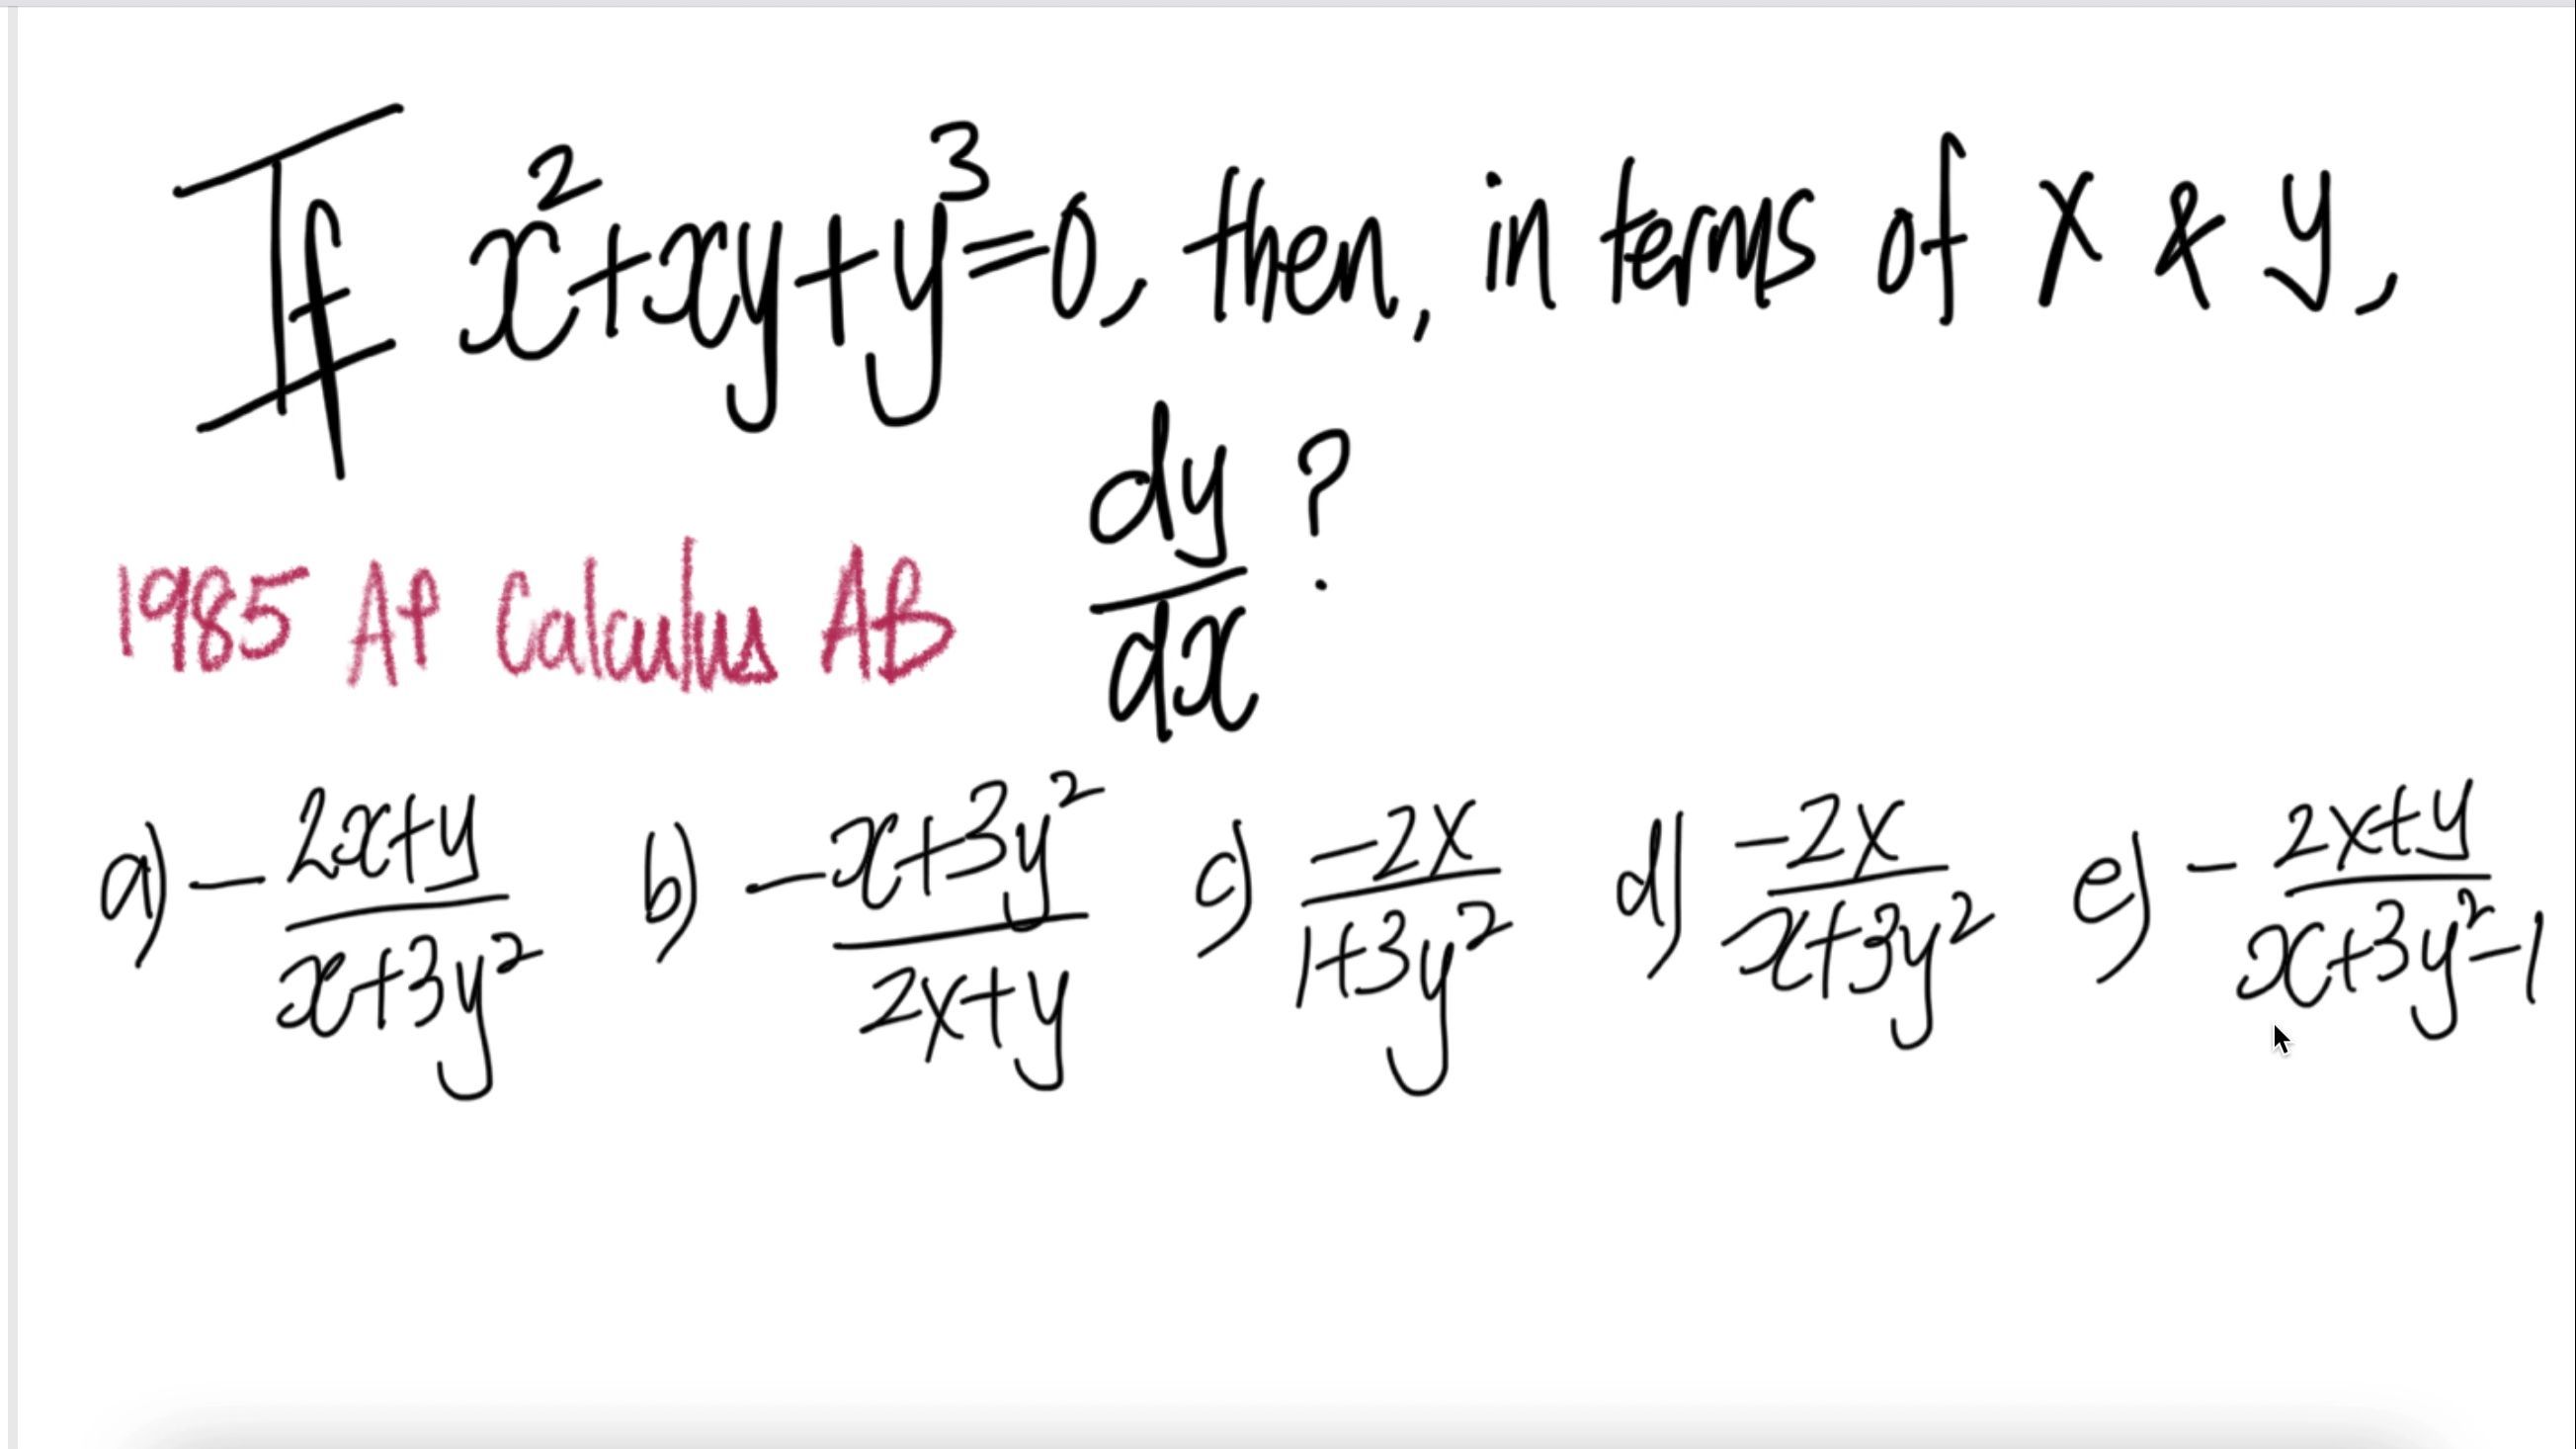 If x²+xy+y³=0, then, in terms of x & y,
dy/dx ?
1985 AP Calculus AB
a) -(2x+y)/(x+3y²) b) -(x+3y²)/(2x+y) c) (-2x)/(1+3y²) d) (-2x)/(x+3y²) e) -(2x+y)/(x+3y²-1)